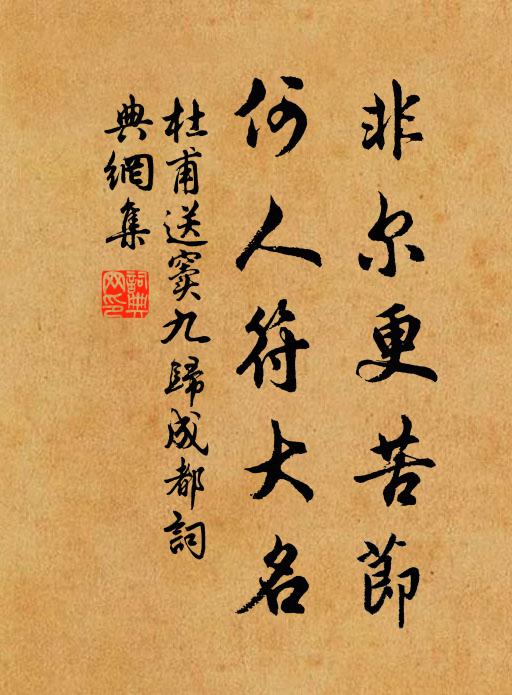 非尔更苦節
何人符大名
杜甫送竇九歸成都詞
典網集
詞典
网印